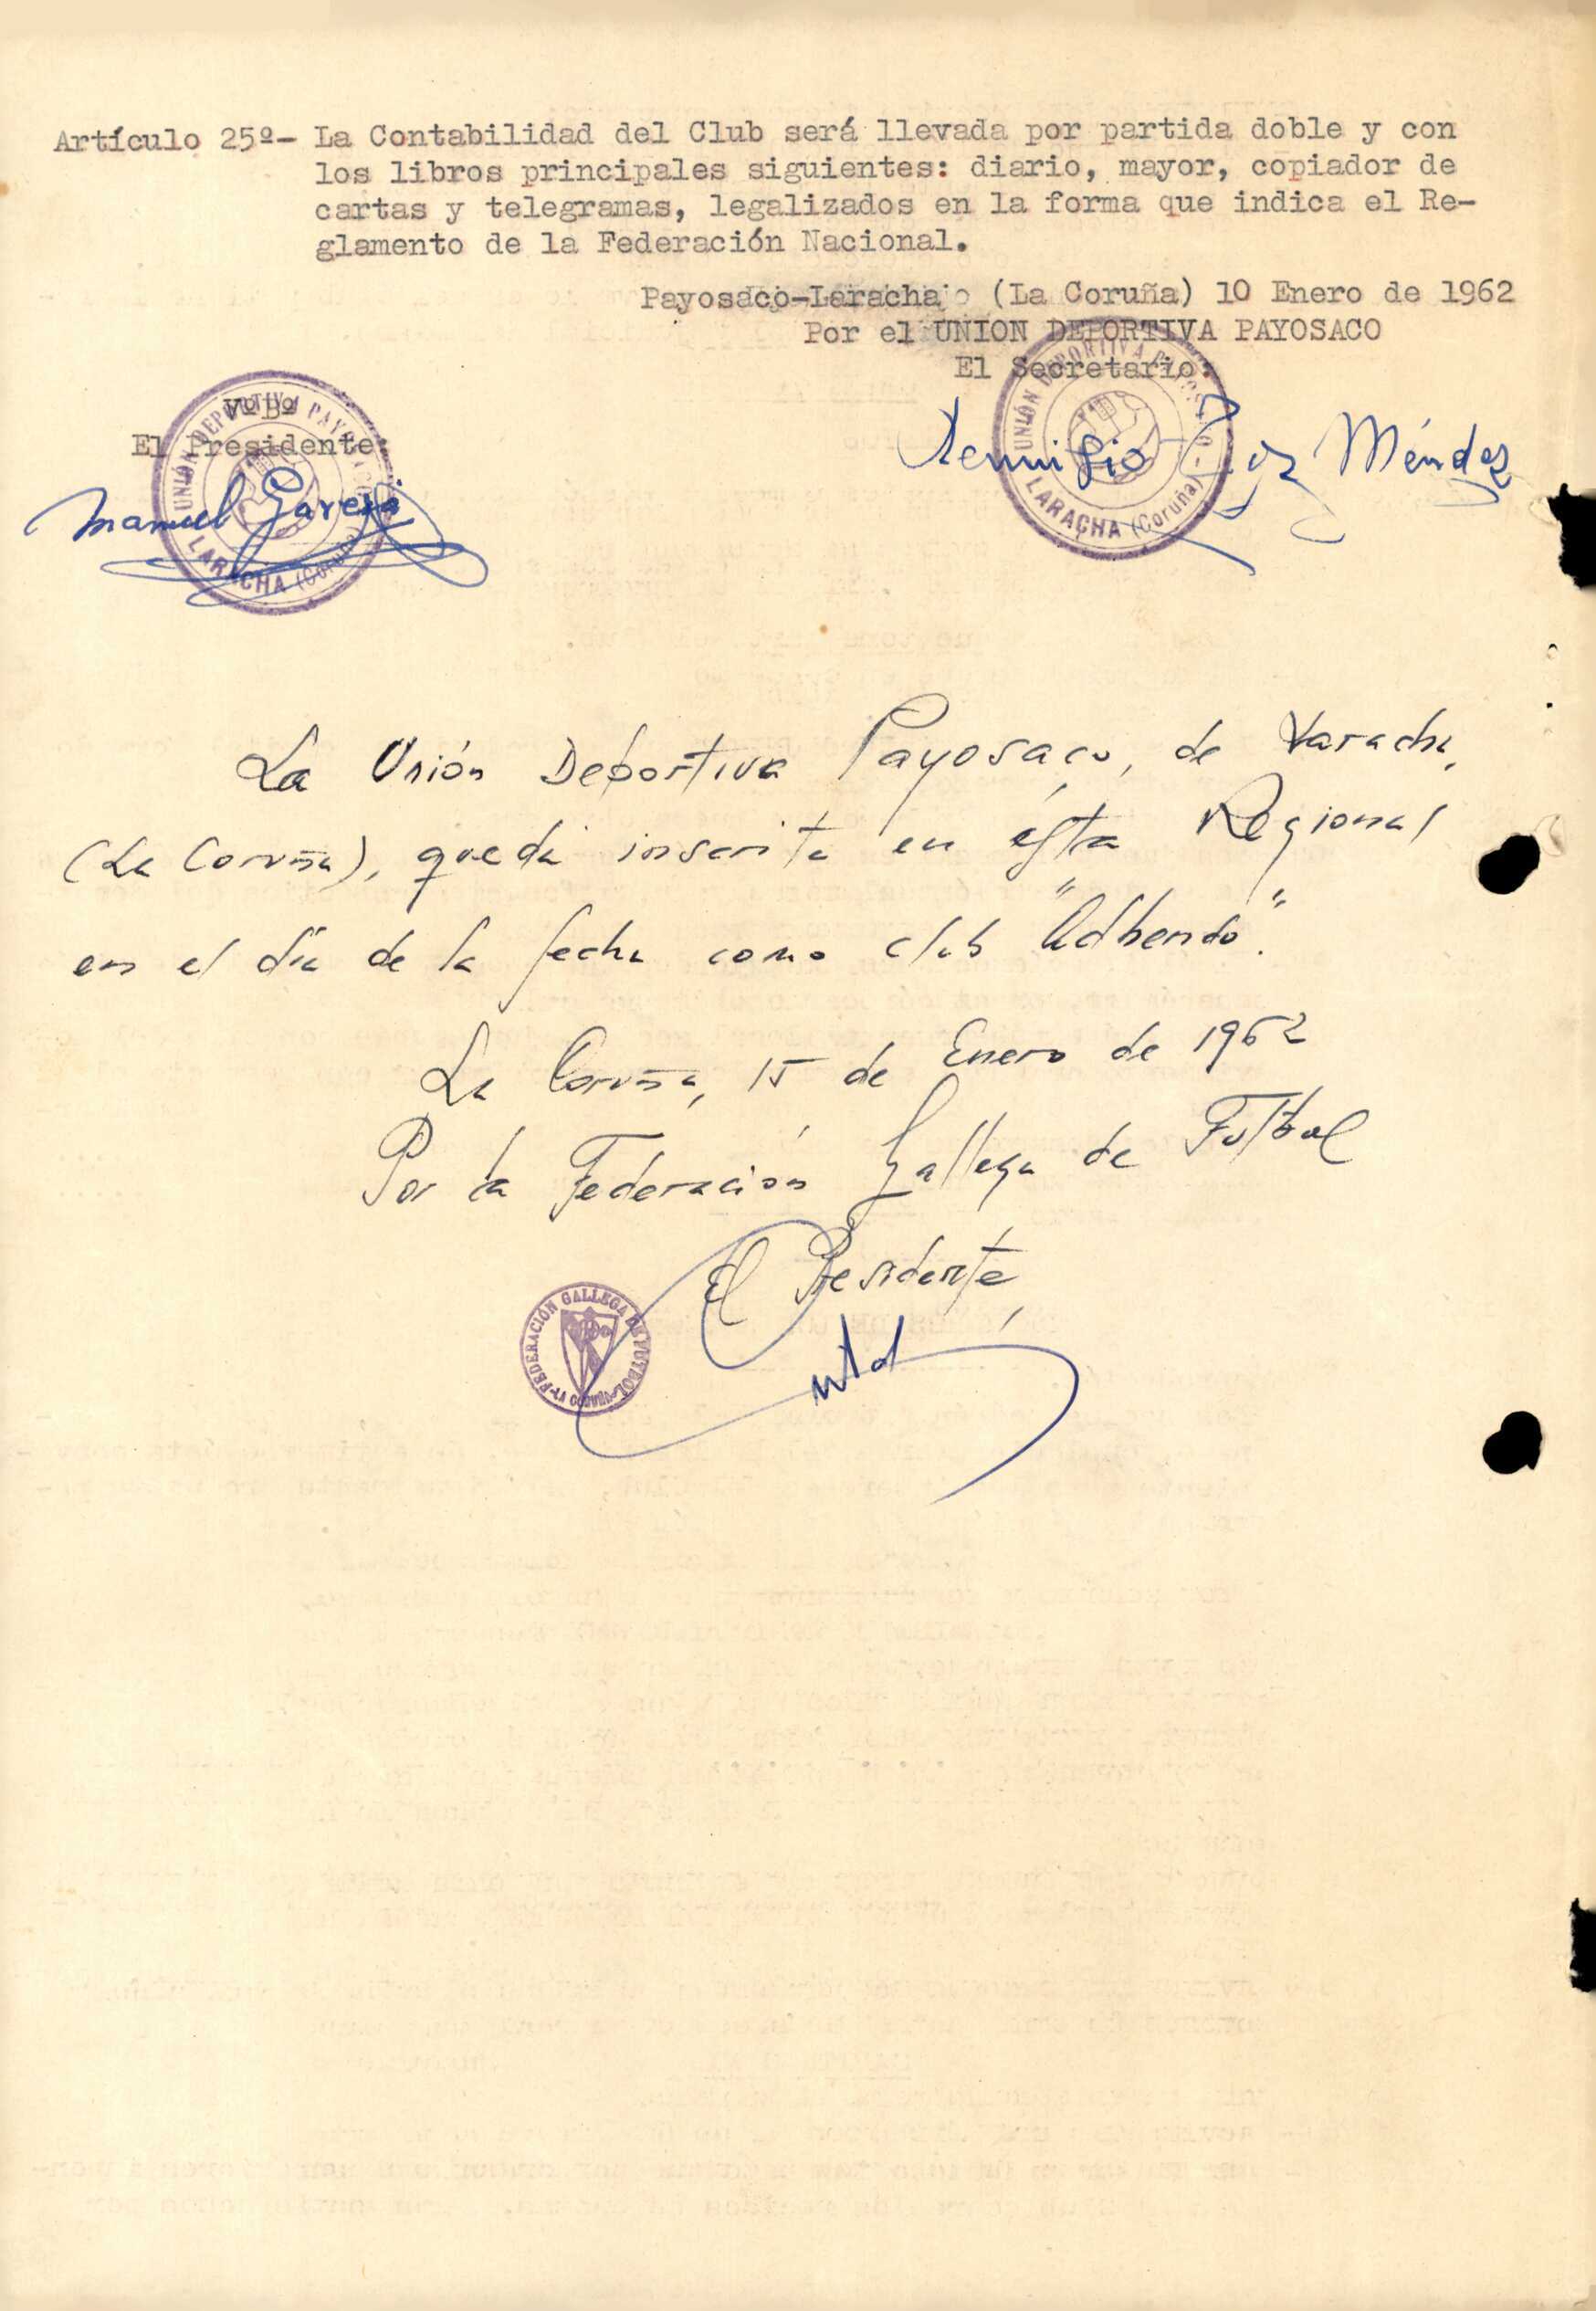 Artículo 25º- La Contabilidad del Club será llevada por partida doble y con
los libros principales siguientes: diario, mayor, copiador de
cartas y telegramas, legalizados en la forma que indica el Re-
glamento de la Federación Nacional.
Payosaco-Laracha (La Coruña) 10 Enero de 1962
Por el UNION DEPORTIVA PAYOSACO
El Secretario:
VºBº
El Presidente:
UNIÓN DEPORTIVA PAYOSACO - LARACHA (Coruña)
Manuel Garcia
UNIÓN DEPORTIVA PAYOSACO - LARACHA (Coruña)
Remigio Méndez
La Unión Deportiva Payosaco, de Laracha,
(La Coruña), queda inscrita en ésta Regional
en el día de la fecha como club "Adherido".
La Coruña, 15 de Enero de 1962
Por la Federación Gallega de Futbol
El Presidente,
FEDERACIÓN GALLEGA DE FUTBOL